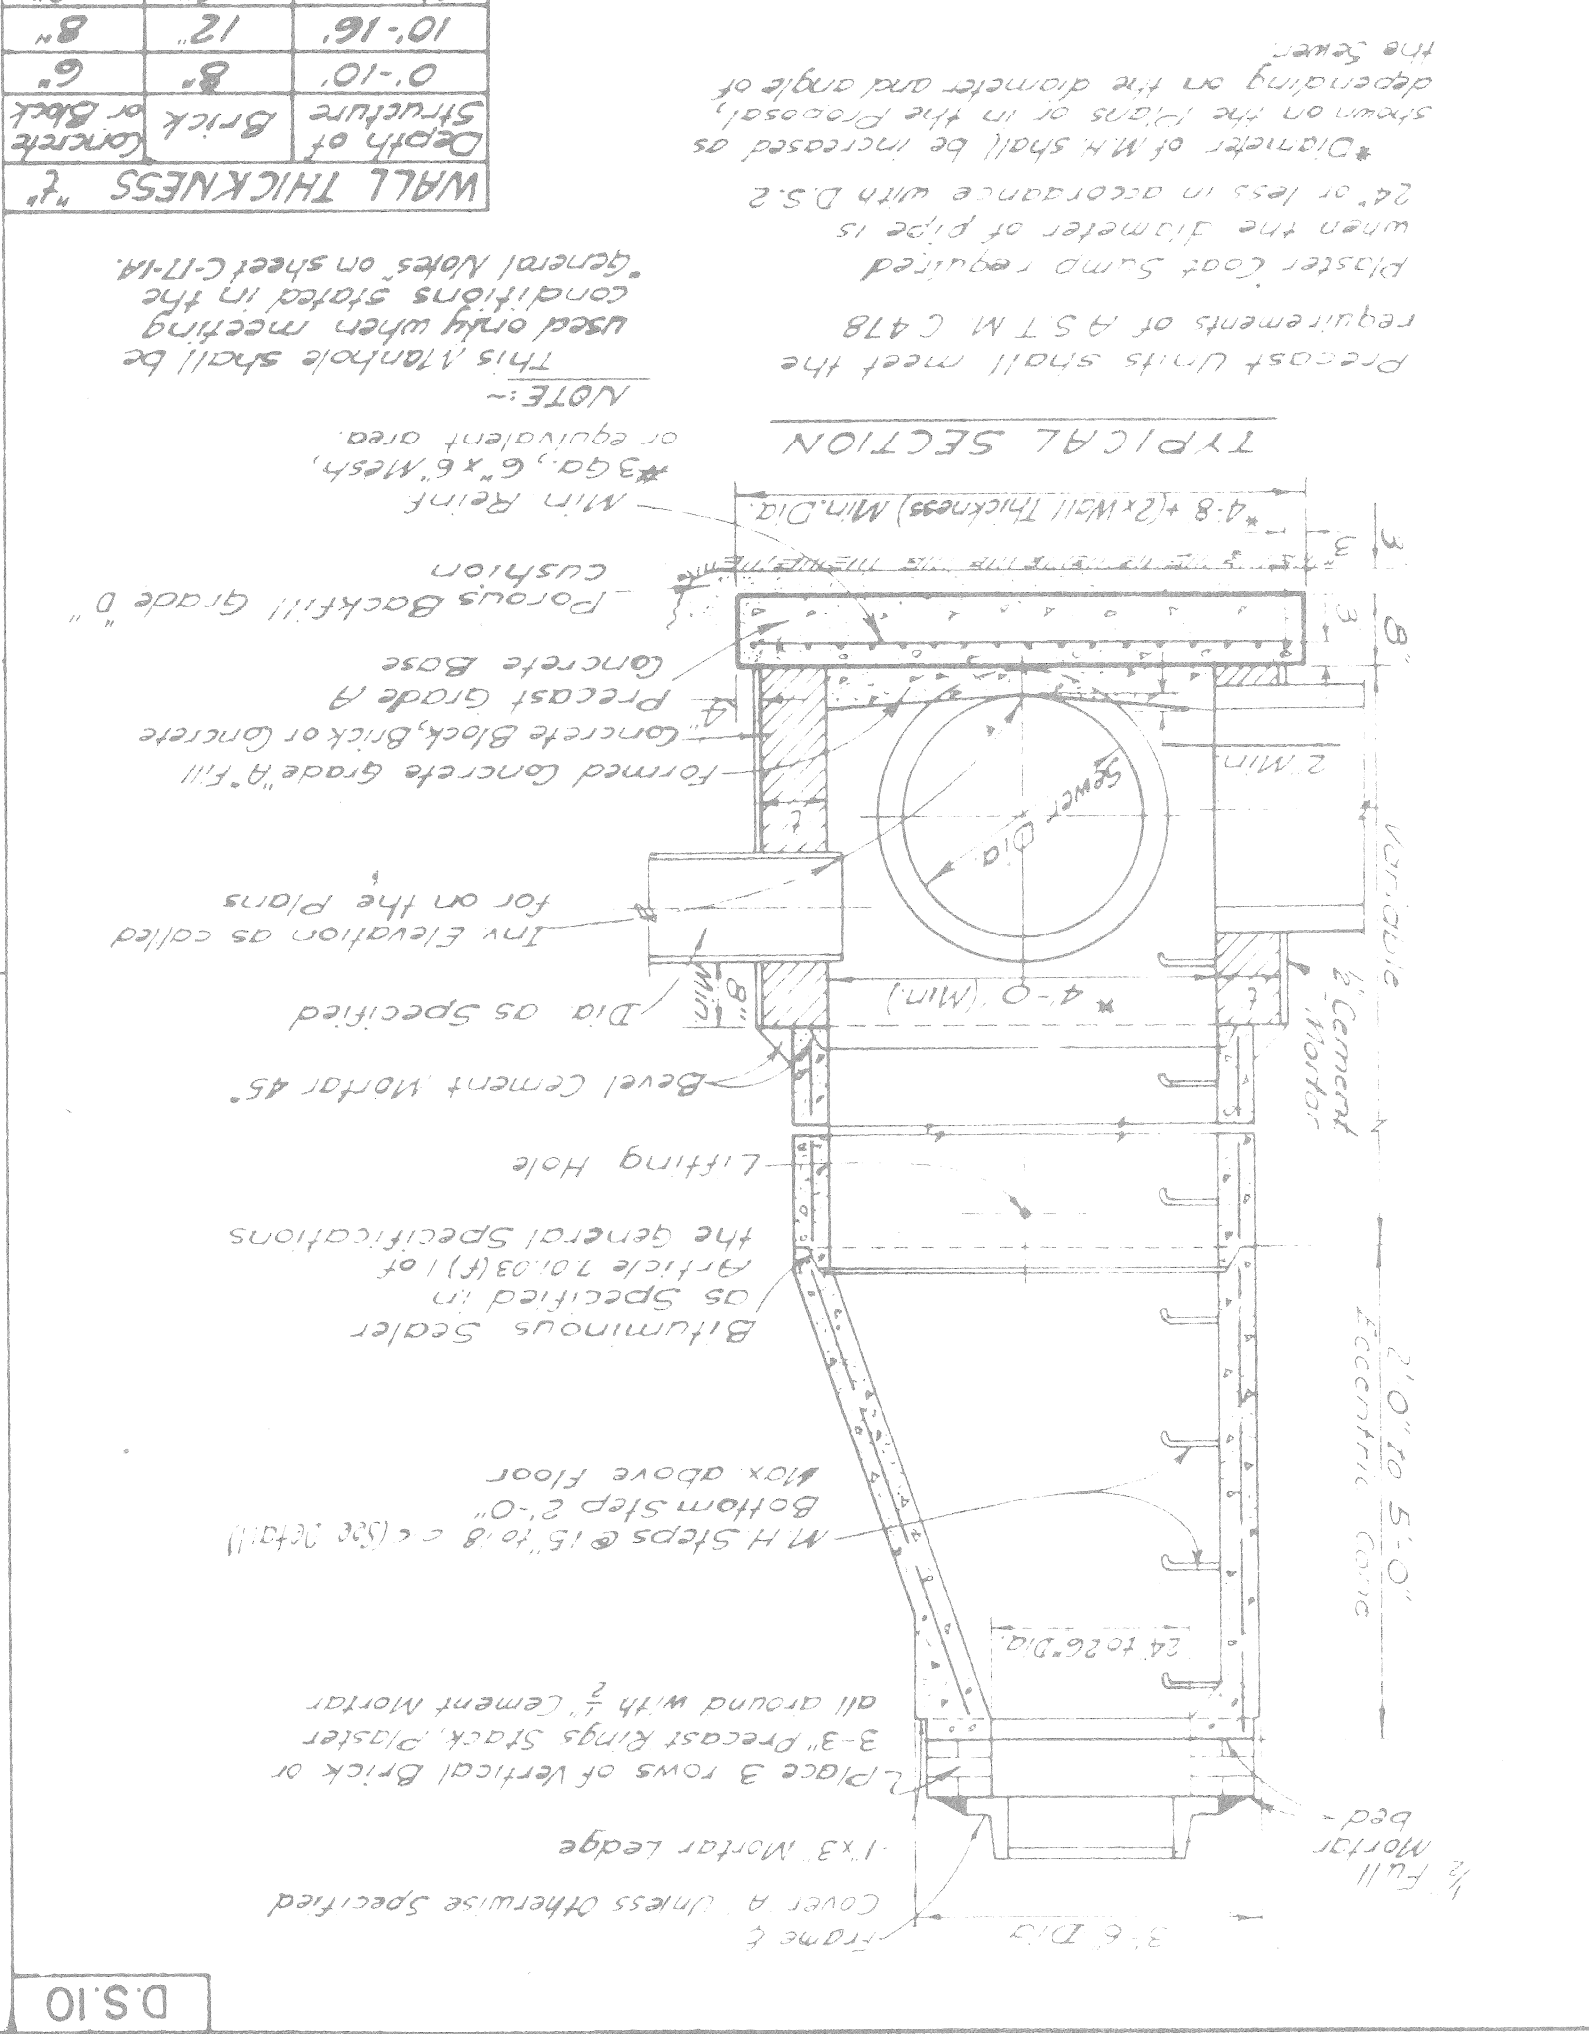 D.S.10
3'-6" Dia
Frame &
Cover A Unless Otherwise Specified
1"x3" Mortar Ledge
1/2" Full
Mortar
bed
Place 3 rows of Vertical Brick or
3-3" Precast Rings Stack, Plaster
all around with 1/2" Cement Mortar
24" to 26" Dia.
M.H. Steps @ 15" to 18" c c (See Detail)
Bottom Step 2'-0"
Max. above Floor
2'-0" to 5'-0"
Eccentric Cone
Bituminous Sealer
as Specified in
Article 7.01.03(f)1 of
the General Specifications
Lifting Hole
Bevel Cement Mortar 45°
1/2" Cement
Mortar
Variable
Dia. as Specified
8"
Min.
* 4'-0" (Min.)
t
t
Inv. Elevation as called
for on the Plans
Sewer
Dia.
t
2" Min.
Formed Concrete Grade "A" Fill
Concrete Block, Brick or Concrete
4"
Precast Grade A
Concrete Base
8"
3"
Porous Backfill Grade "D"
cushion
3"
3"
*4'-8"+(2xWall Thickness) Min. Dia.
Min Reinf
#3 Ga., 6"x6" Mesh,
or equivalent area.
TYPICAL SECTION
NOTE:-
This Manhole shall be
used only when meeting
conditions stated in the
"General Notes" on sheet C-17-1A.
Precast Units shall meet the
requirements of A.S.T.M. C 478
Plaster Coat Sump required
when the diameter of pipe is
24" or less in accordance with D.S.2
*Diameter of M.H. shall be increased as
shown on the Plans or in the Proposal,
depending on the diameter and angle of
the Sewer
WALL THICKNESS "t"
Depth of Structure Brick Concrete or Block
0'-10' 8" 6"
10'-16' 12" 8"